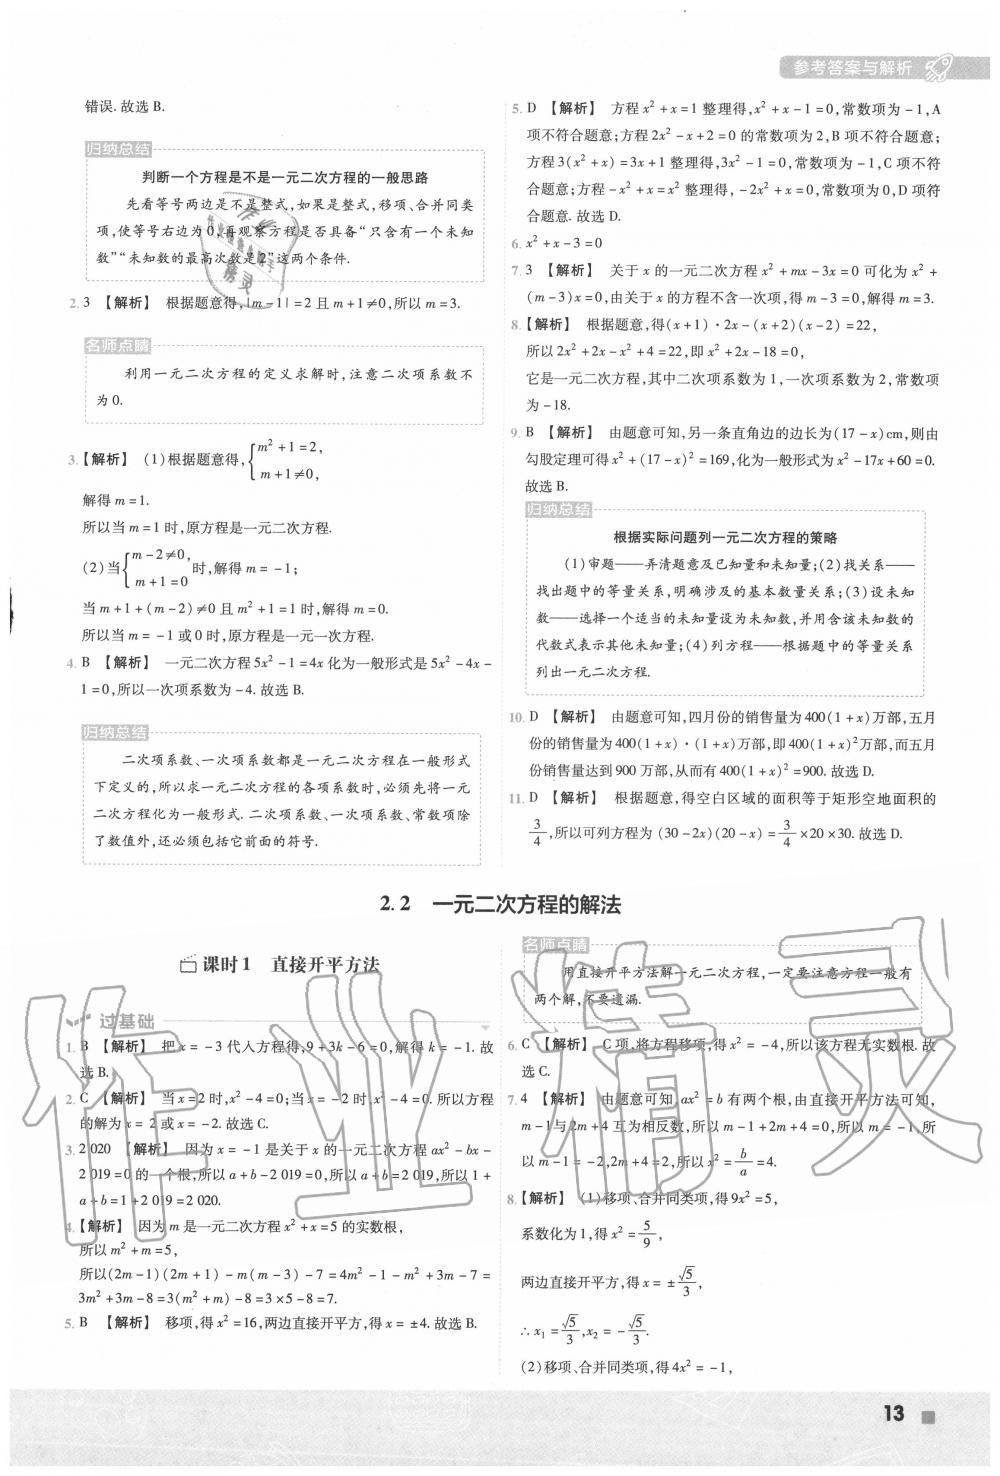 参考答案与解析
错误.故选B.
归纳总结
判断一个方程是不是一元二次方程的一般思路
先看等号两边是不是整式,如果是整式,移项、合并同类
项,使等号右边为0,再观察方程是否具备“只含有一个未知
数”“未知数的最高次数是2”这两个条件.
2. 3 【解析】 根据题意得,|m-1|=2且m+1≠0,所以m=3.
名师点睛
利用一元二次方程的定义求解时,注意二次项系数不
为0.
3.【解析】 (1)根据题意得,{m²+1=2,
m+1≠0,
解得m=1.
所以当m=1时,原方程是一元二次方程.
(2)当{m-2≠0,
m+1=0 时,解得m=-1;
当m+1+(m-2)≠0且m²+1=1时,解得m=0.
所以当m=-1或0时,原方程是一元一次方程.
4. B 【解析】 一元二次方程5x²-1=4x化为一般形式是5x²-4x-
1=0,所以一次项系数为-4.故选B.
归纳总结
二次项系数、一次项系数都是一元二次方程在一般形式
下定义的,所以求一元二次方程的各项系数时,必须先将一元
二次方程化为一般形式.二次项系数、一次项系数、常数项除
了数值外,还必须包括它前面的符号.
5. D 【解析】 方程x²+x=1整理得,x²+x-1=0,常数项为-1,A
项不符合题意;方程2x²-x+2=0的常数项为2,B项不符合题意;
方程3(x²+x)=3x+1整理得,3x²-1=0,常数项为-1,C项不符
合题意;方程-x²+x=x²整理得,-2x²+x=0,常数项为0,D项符
合题意.故选D.
6. x²+x-3=0
7. 3 【解析】 关于x的一元二次方程x²+mx-3x=0可化为x²+
(m-3)x=0,由关于x的方程不含一次项,得m-3=0,解得m=3.
8.【解析】 根据题意,得(x+1)·2x-(x+2)(x-2)=22,
所以2x²+2x-x²+4=22,即x²+2x-18=0,
它是一元二次方程,其中二次项系数为1,一次项系数为2,常数项
为-18.
9. B 【解析】 由题意可知,另一条直角边的边长为(17-x)cm,则由
勾股定理可得x²+(17-x)²=169,化为一般形式为x²-17x+60=0.
故选B.
归纳总结
根据实际问题列一元二次方程的策略
(1)审题——弄清题意及已知量和未知量;(2)找关系——
找出题中的等量关系,明确涉及的基本数量关系;(3)设未知
数——选择一个适当的未知量设为未知数,并用含该未知数的
代数式表示其他未知量;(4)列方程——根据题中的等量关系
列出一元二次方程.
10. D 【解析】 由题意可知,四月份的销售量为400(1+x)万部,五月
份的销售量为400(1+x)·(1+x)万部,即400(1+x)²万部,而五月
份销售量达到900万部,从而有400(1+x)²=900.故选D.
11. D 【解析】 根据题意,得空白区域的面积等于矩形空地面积的
3/4,所以可列方程为(30-2x)(20-x)=3/4×20×30.故选D.
2.2 一元二次方程的解法
课时1 直接开平方法
过基础
1. B 【解析】 把x=-3代入方程得,9+3k-6=0,解得k=-1.故
选B.
2. C 【解析】 当x=2时,x²-4=0;当x=-2时,x²-4=0.所以方程
的解为x=2或x=-2.故选C.
3. 2 020 【解析】 因为x=-1是关于x的一元二次方程ax²-bx-
2 019=0的一个根,所以a+b-2 019=0,所以a+b=2 019,所以1+
a+b=1+2 019=2 020.
4.【解析】 因为m是一元二次方程x²+x=5的实数根,
所以m²+m=5,
所以(2m-1)(2m+1)-m(m-3)-7=4m²-1-m²+3m-7=
3m²+3m-8=3(m²+m)-8=3×5-8=7.
5. B 【解析】 移项,得x²=16,两边直接开平方,得x=±4.故选B.
名师点睛
用直接开平方法解一元二次方程,一定要注意方程一般有
两个解,不要遗漏.
6. C 【解析】 C项,将方程移项,得x²=-4,所以该方程无实数根.故
选C.
7. 4 【解析】 由题意可知,ax²=b有两个根,由直接开平方法可知,
m-1与2m+4互为相反数,所以m-1+2m+4=0,所以m=-1,所
以m-1=-2,2m+4=2,所以x²=b/a=4.
8.【解析】 (1)移项、合并同类项,得9x²=5,
系数化为1,得x²=5/9,
两边直接开平方,得x=±√5/3,
∴x₁=√5/3,x₂=-√5/3.
(2)移项、合并同类项,得4x²=-1,
13
作业精灵